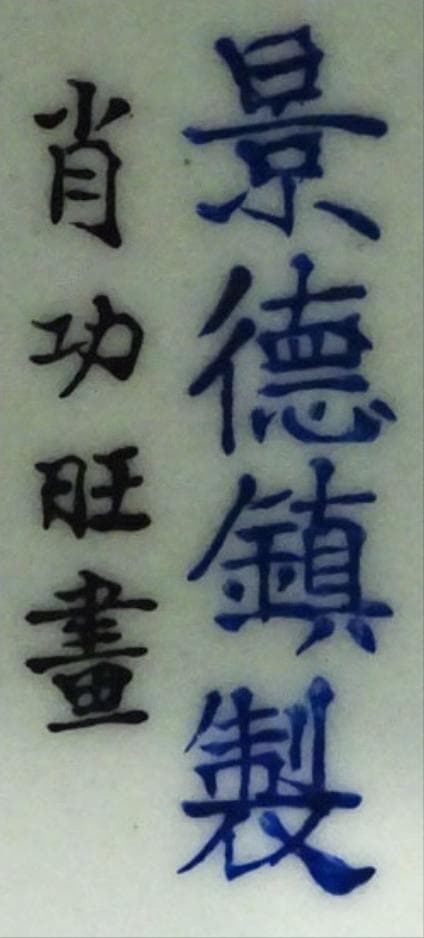 景德鎮製
肖功旺畫